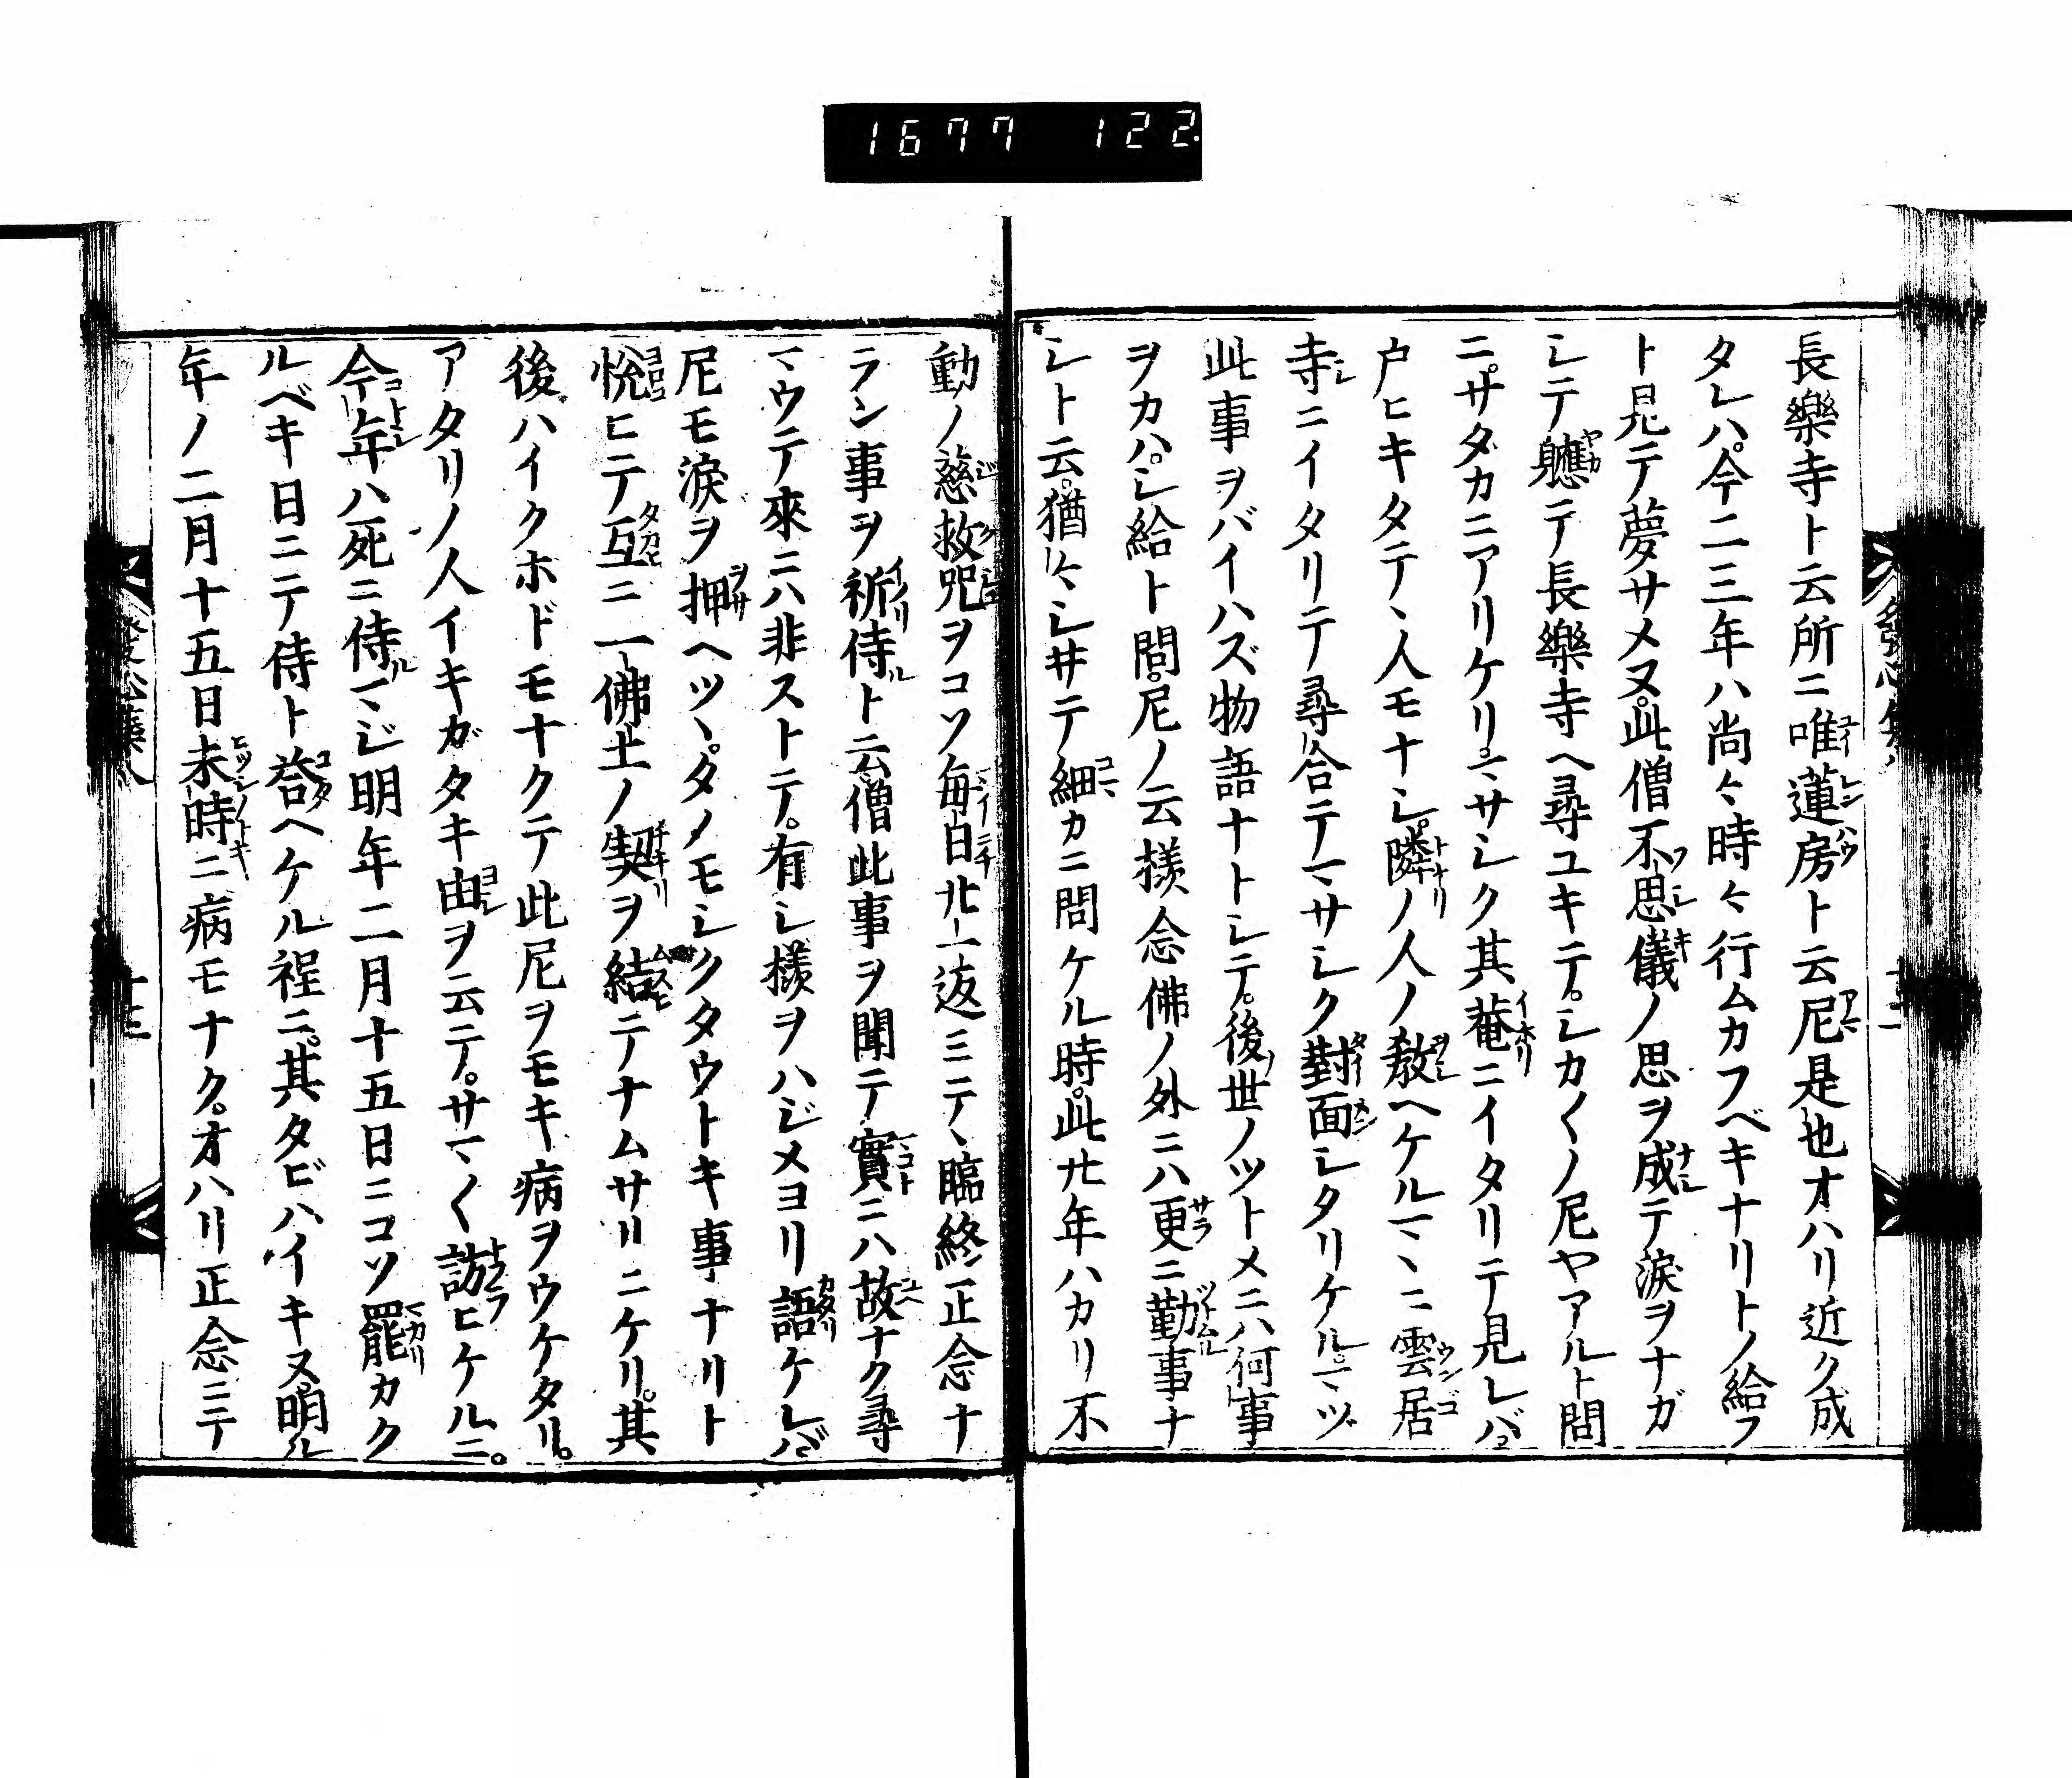 1677 122
長樂寺ト云所ニ唯蓮房ト云尼是也オハリ近ク成
タレハ。今二三年ハ尚々時々行ムカフベキナリトノ給フ
ト見テ夢サメヌ。此僧不思儀ノ思ヲ成テ涙ヲナガ
シテ軈テ長樂寺ヘ尋ユキテ。シカ〱ノ尼ヤアルト問
ニ。サダカニアリケリ。マサシク其菴ニイタリテ見レバ。
戸ヒキタテヽ人モナシ。隣ノ人ノ敎ヘケルマヽニ雲居
寺ニイタリテ尋合テマサシク對面シタリケル。マヅ
此事ヲバイハズ物語ナトシテ。後世ノツトメニハ何事
ヲカハ。シ給ト問。尼ノ云樣念佛ノ外ニハ更ニ勤事ナ
シト云。猶々シサテ細カニ問ケル時。此廿年ハカリ不
動ノ慈救咒ヲコソ毎日廿一返ミテヽ臨終正念ナ
ラン事ヲ祈侍ト云僧此事ヲ聞テ實ニハ故ナク尋
マウテ來ニハ非ストテ。有シ樣ヲハジメヨリ語ケレバ
尼モ涙ヲ押ヘツヽ。タノモシクタウトキ事ナリト
悅ヒテ互ニ一佛土ノ契ヲ結テナムサリニケリ。其
後ハイクホドモナクテ此尼ヲモキ病ヲウケタリ。
アタリノ人イキガタキ由ヲ云テ。サマ〱訪ヒケルニ。
今年ハ死ニ侍マジ明年二月十五日ニコソ罷カク
ルベキ日ニテ侍ト荅ヘケル程ニ。其タビハイキヌ。明ル
年ノ二月十五日未時ニ病モナク。オハリ正念ニテ